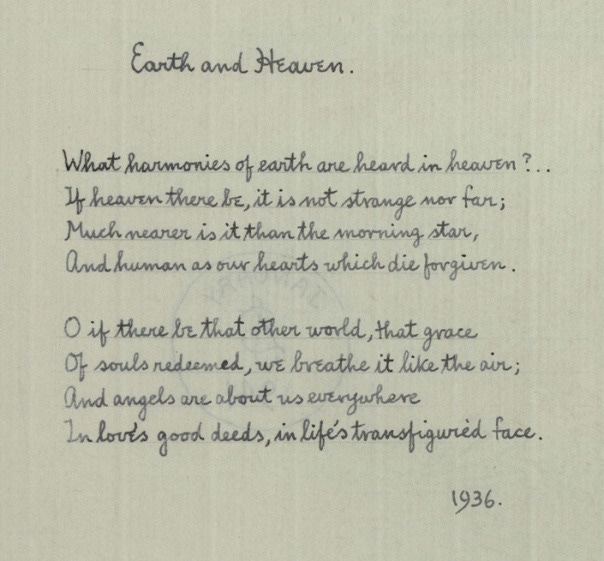 Earth and Heaven.
What harmonies of earth are heard in heaven?..
If heaven there be, it is not strange nor far;
Much nearer is it than the morning star,
And human as our hearts which die forgiven.
O if there be that other world, that grace
Of souls redeemed, we breathe it like the air;
And angels are about us everywhere
In love's good deeds, in life's transfigurèd face.
1936.